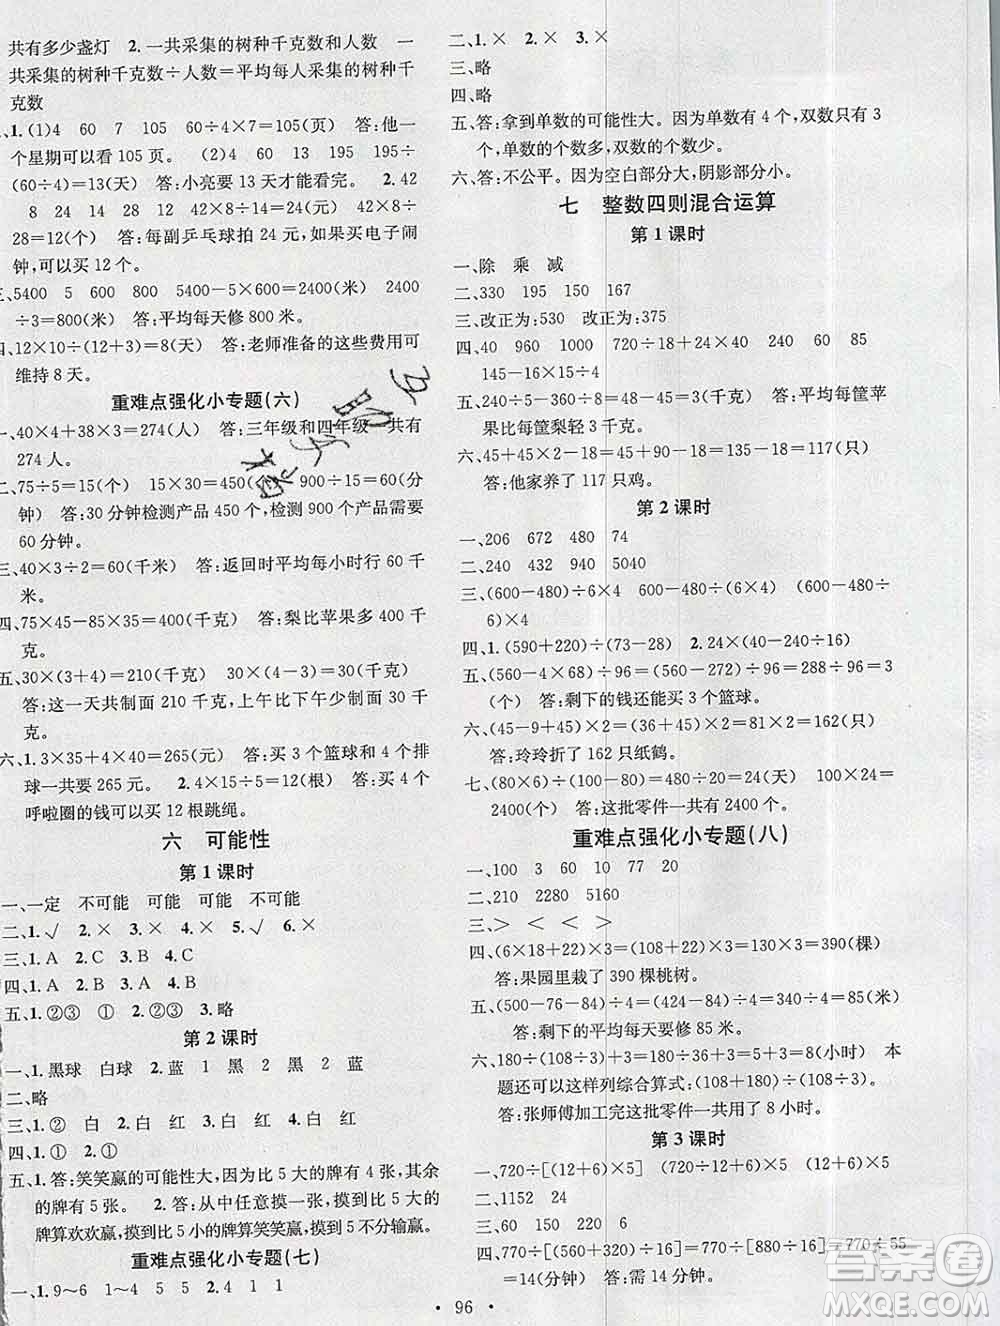 共有多少盏灯　2.一共采集的树种千克数和人数　一
共采集的树种千克数÷人数＝平均每人采集的树种千
克数
、1.(1)4　60　7　105　60÷4×7＝105(页)　答:他一
个星期可以看 105 页。　(2)4　60　13　195　195÷
(60÷4)＝13(天)　答:小亮要 13 天才能看完。　2.42
8　28　24　28　24÷8×4＝12(元)　42÷6×4÷
28＝12(个)　答:每副乒乓球拍 24 元,如果买电子闹
钟,可以买 12 个。
三、5400　5　600　800　5400－5×600＝2400(米)　2400
÷3＝800(米)　答:平均每天修 800 米。
四、12×10÷(12＋3)＝8(天)　答:老师准备的这些费用可
维持 8 天。
重难点强化小专题(六)
一、40×4＋38×3＝274(人)　答:三年级和四年级一共有
274 人。
二、75÷5＝15(个)　15×30＝450(个)　900÷15＝60(分
钟)　答:30 分钟检测产品 450 个,检测 900 个产品共需
60 分钟。
三、40×3÷2＝60(千米)　答:返回时平均每小时行 60 千
米。
四、75×45－85×35＝400(千克)　答:梨比苹果多 400 千
克。
五、30×(3＋4)＝210(千克)　30×(4－3)＝30(千克)
答:这一天共制面 210 千克,上午比下午少制面 30 千
克。
六、1.3×35＋4×40＝265(元)　答:买 3 个篮球和 4 个排
球一共要 265 元。　2.4×15÷5＝12(根)　答:买 4 个
呼啦圈的钱可以买 12 根跳绳。
六　可能性
第 1 课时
一、一定　不可能　可能　可能　不可能
二、1.√　2.×　3.×　4.×　5.√　6.×
三、1.A　2.C　3.B　4.C
四、1.A　2.B　3.A　4.C
五、1.②③　①　2.②③　3.略
第 2 课时
一、1.黑球　白球　2.蓝　1　3.蓝　黑　2　蓝
二、略
三、1.②　白　白　2.白　红　3.白　红
四、1.①　2.①
五、1.答:笑笑赢的可能性大,因为比 5 大的有 4 张,其余
的牌有 5 张。　2.答:从中任意摸一张,摸到比 5 大的
牌算欢欢赢,摸到比 5 小的牌算笑笑赢,摸到 5 不分输赢。
重难点强化小专题(七)
一、1.9～6　1～4　5　5　2.4　1　1
二、1.×　2.×　3.×
三、略
四、略
五、答:拿到单数的可能性大。因为单数有 4 个,双数只有 3
个,单数的个数多,双数的个数少。
六、答:不公平。因为空白部分大,阴影部分小。
七　整数四则混合运算
第 1 课时
一、除　乘　减
二、330　195　150　167
三、改正为:530　改正为:375
四、40　960　1000　720÷18＋24×40　240×5÷8
145－16×15÷4
五、240÷5－360÷8＝48－45＝3(千克)　答:平均每筐苹
果比每筐梨轻 3 千克。
六、45＋45×2－18＝45＋90－18＝135－18＝117(只)
答:他家养了 117 只鸡。
第 2 课时
一、206　672　480　74
二、240　432　920　5040
三、(600－480)÷6×4　600－480÷(6×4)　(600－480÷
6)×4
四、1.(590＋220)÷(73－28)　2.24×(40－240÷16)
五、(560－4×68)÷96＝(560－272)÷96＝288÷96＝3
(个)　答:剩下的钱还能买 3 个篮球。
六、(45－9＋45)×2＝(36＋45)×2＝81×2＝162(只)
答:玲玲折了 162 只纸鹤。
七、(80×6)÷(100－80)＝480÷20＝24(天)　100×24＝
2400(个)　答:这批零件一共有 2400 个。
重难点强化小专题(八)
一、100　3　60　10　77　20
二、210　2280　5160
三、＞　＜　＜　＞
四、(6×18＋22)×3＝(108＋22)×3＝130×3＝390(棵)
答:果园里栽了 390 棵桃树。
五、(500－76－84)÷4＝(424－84)÷4＝340÷4＝85(米)
答:剩下的平均每天要修 85 米。
六、180÷(108÷3)＋3＝180÷36＋3＝5＋3＝8(小时)　本
题还可以这样列综合算式:(108＋180)÷(108÷3)。
答:张师傅加工完这批零件一共用了 8 小时。
第 3 课时
一、720÷[(12＋6)×5]　(720÷12＋6)×5
二、1152　24
三、60　150　220　6
四、770÷[(560＋320)÷16]＝770÷[880÷16]＝770÷55
＝14(分钟)　答:需 14 分钟。
· 96 ·
答案圈
MXQE.COM